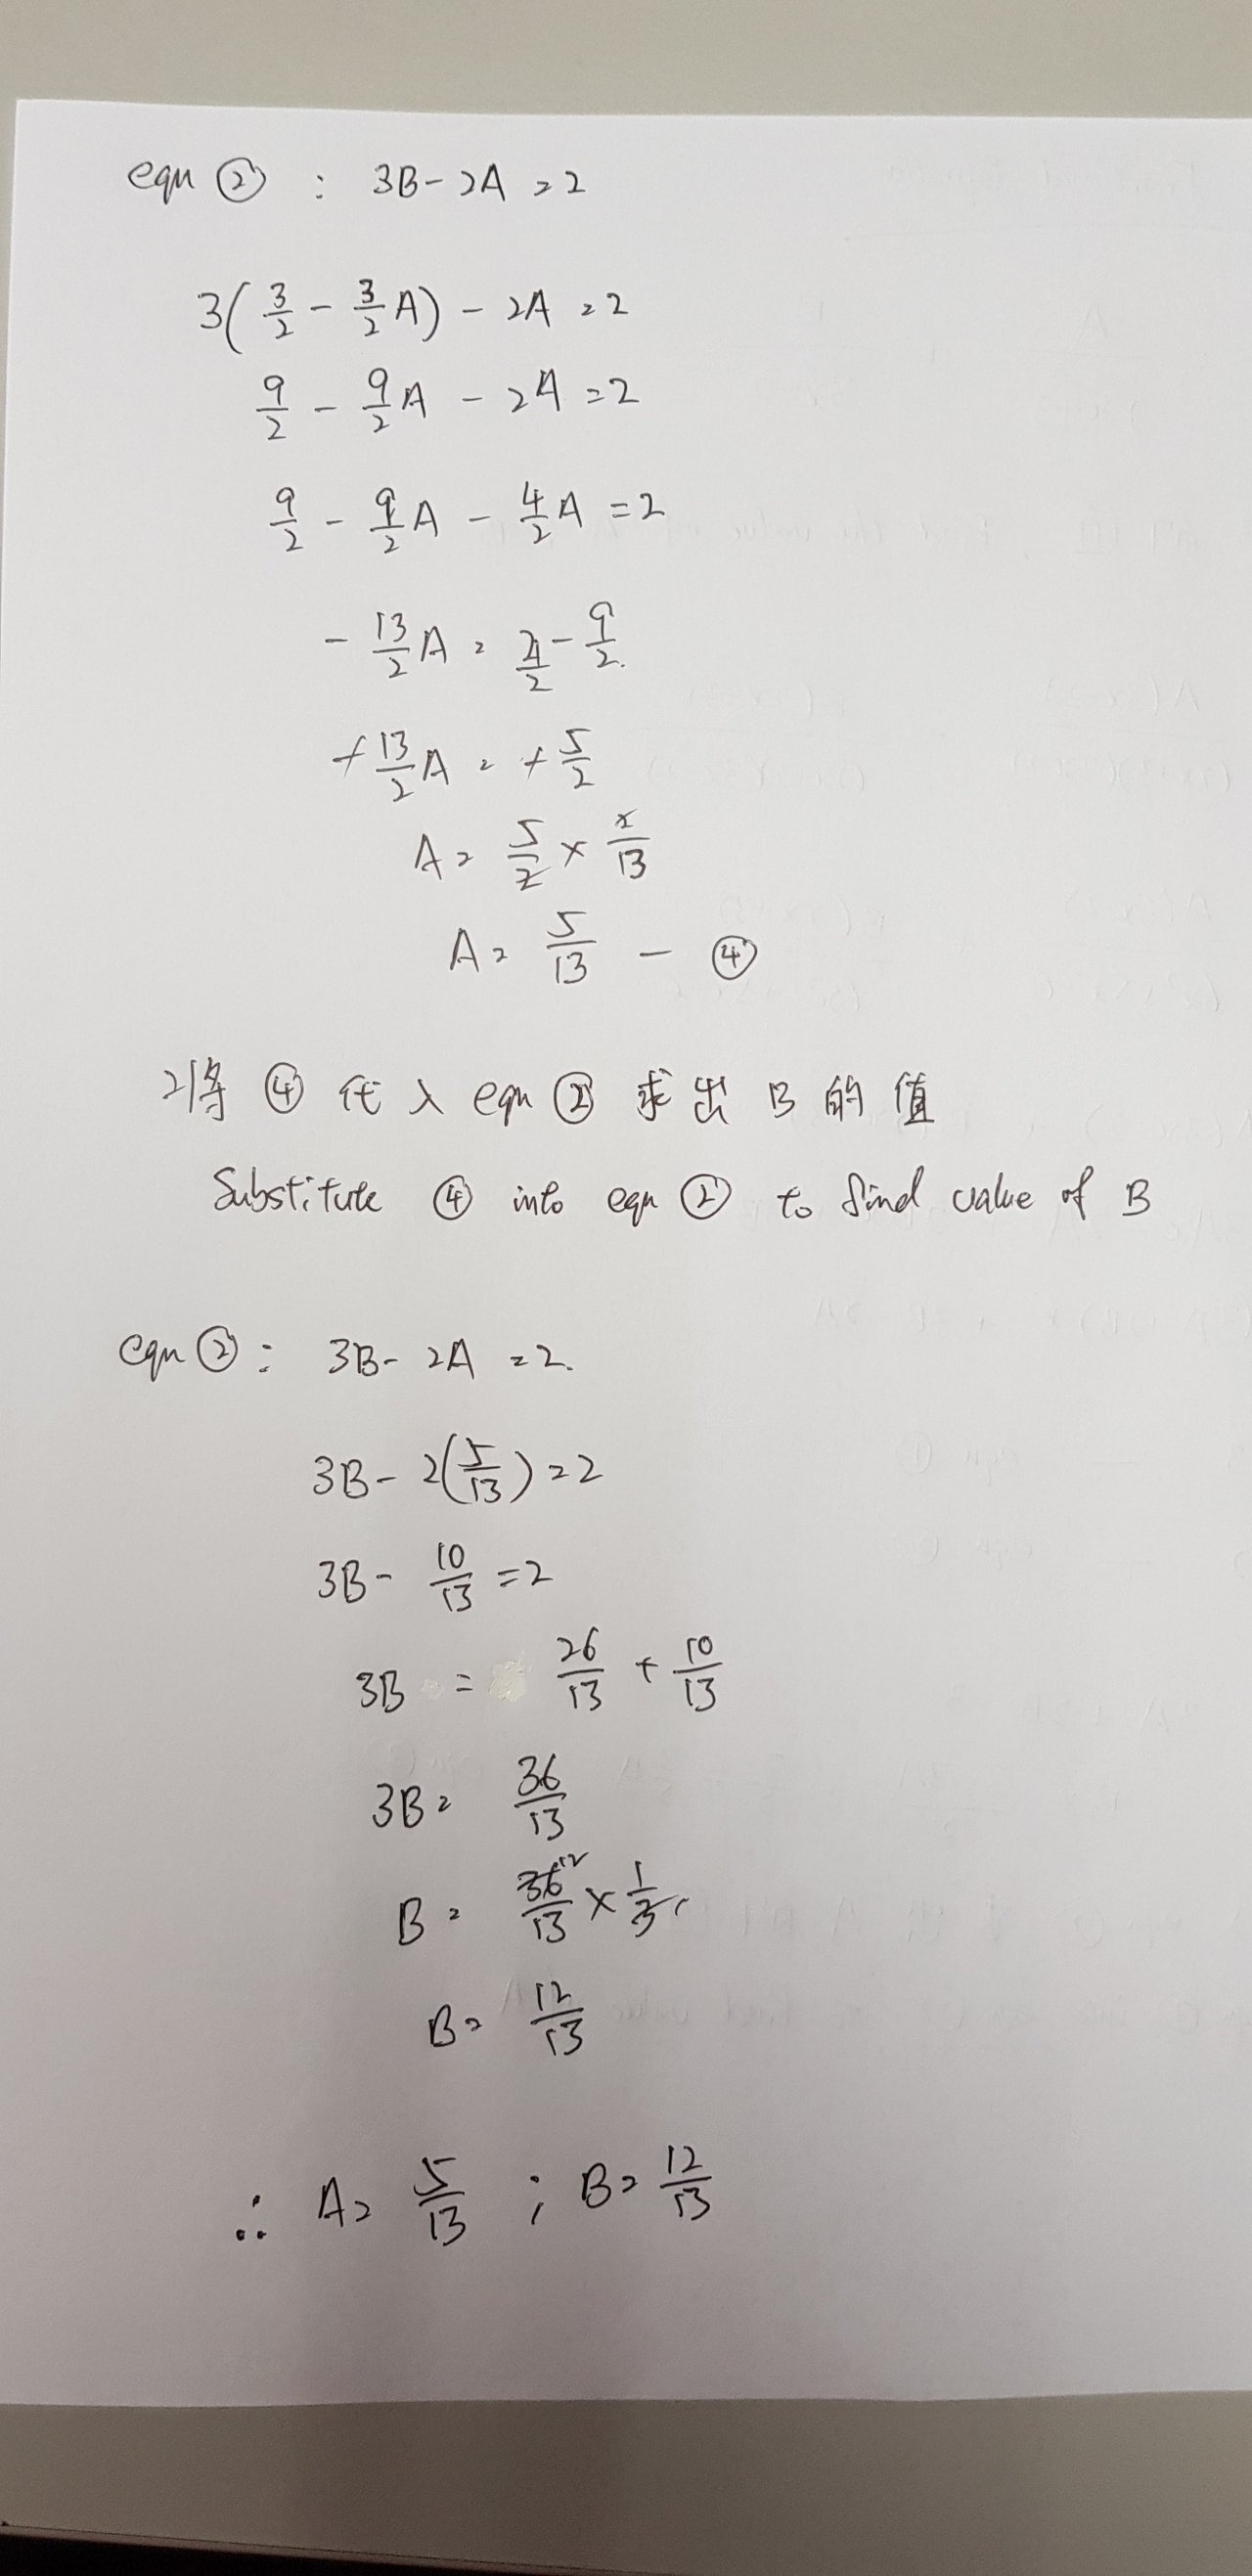 eqn ② : 3B - 2A = 2
3(3/2 - 3/2 A) - 2A = 2
9/2 - 9/2 A - 2A = 2
9/2 - 9/2 A - 4/2 A = 2
- 13/2 A = 4/2 - 9/2.
+ 13/2 A = + 5/2
A = 5/2 × 2/13
A = 5/13 - ④
将 ④ 代入 eqn ② 求出 B 的值
Substitute ④ into eqn ② to find value of B
eqn ② : 3B - 2A = 2.
3B - 2(5/13) = 2
3B - 10/13 = 2
3B = 26/13 + 10/13
3B = 36/13
B = 36/13 × 1/3
B = 12/13
∴ A = 5/13 ; B = 12/13